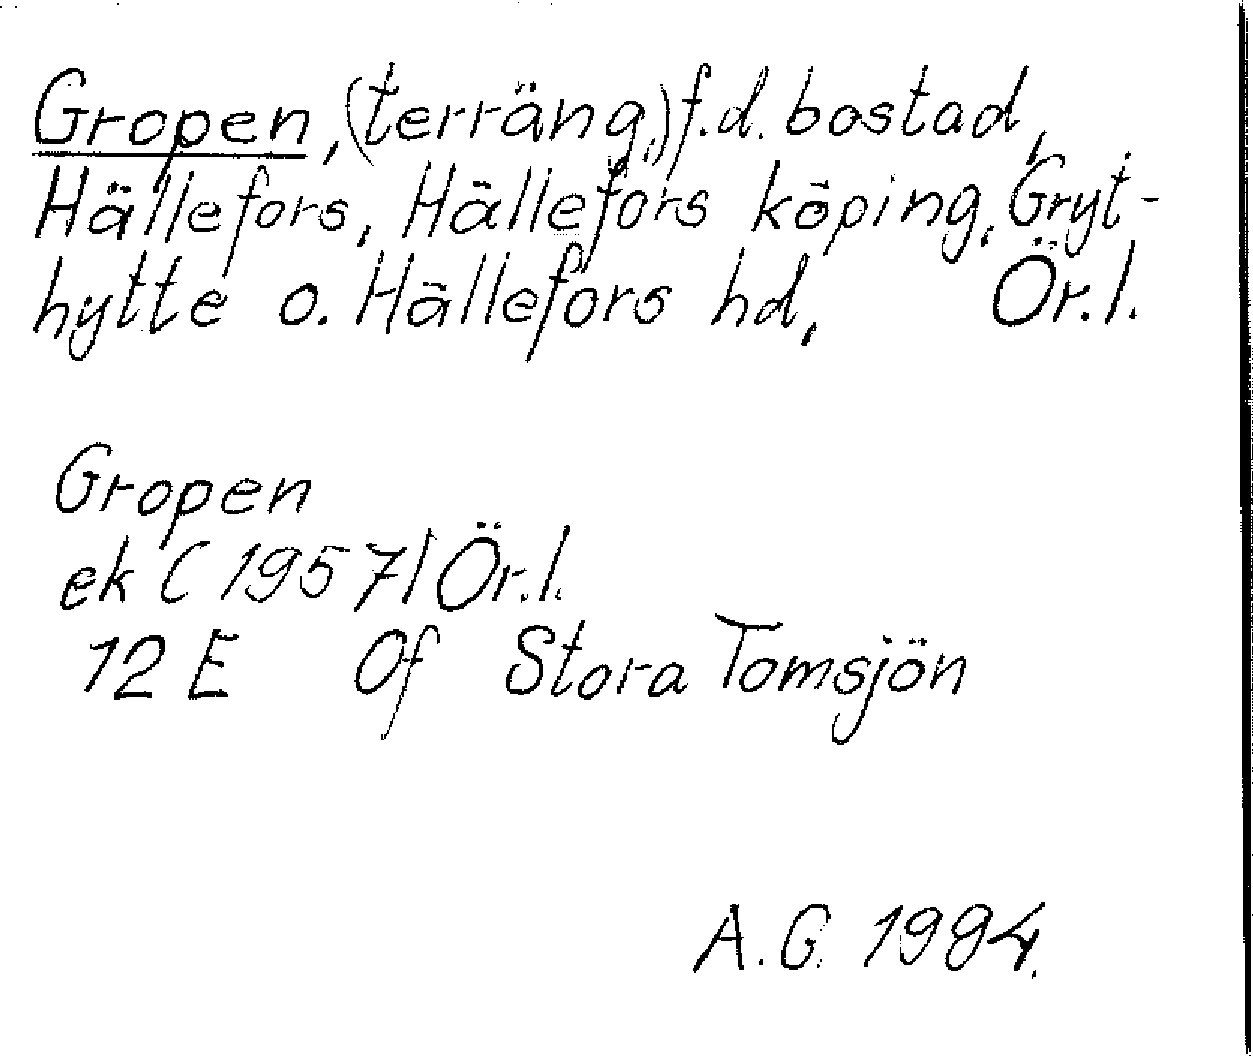 Gropen, (terräng,) f.d. bostad,
Hällefors, Hällefors köping, Gryt-
hytte o. Hällefors hd, Ör.l.
Gropen
ek (1957) Ör.l.
12 E 0f Stora Tomsjön
A.G. 1994.